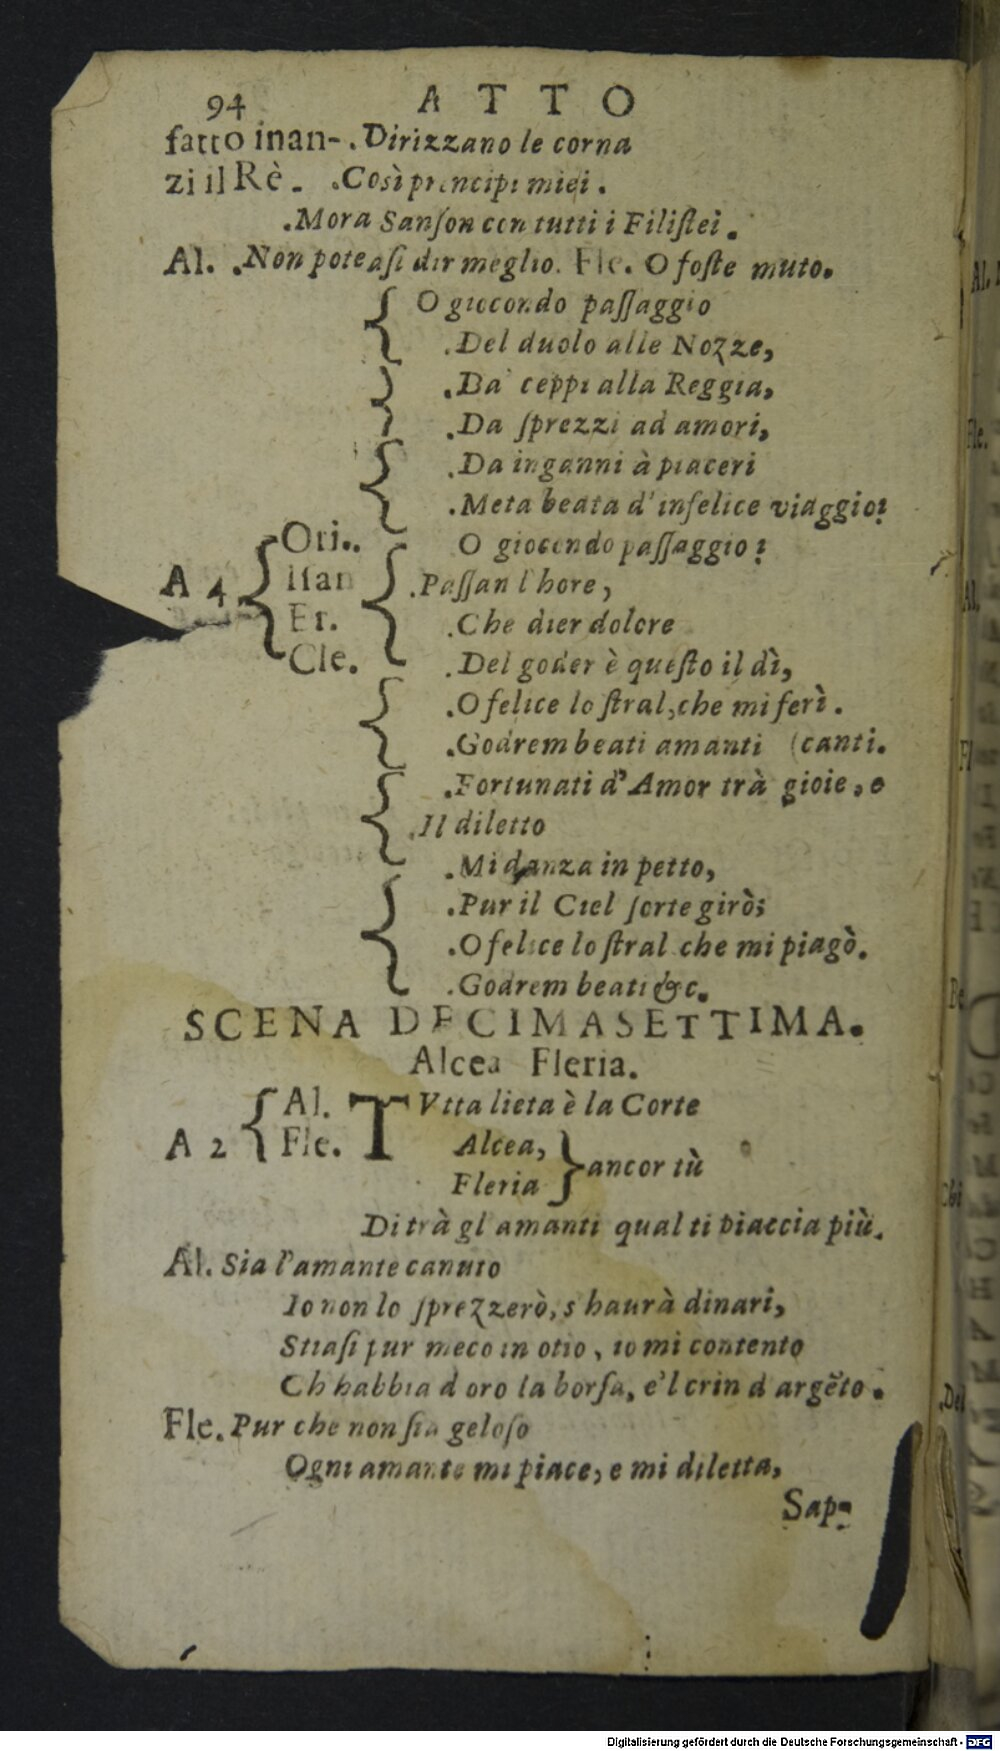 94 ATTO
fatto inan- . Dirizzano le corna
zi il Rè. .Così principi miei.
.Mora Sanson con tutti i Filiſtei.
Al. .Non poteaſi dir meglio. Fle. O foſte muto.
O giocondo paſſaggio
.Del duolo alle Nozze,
.Da ceppi alla Reggia,
.Da ſprezzi ad amori,
.Da inganni à piaceri
.Meta beata d'infelice viaggio!
Ori.. O giocondo paſſaggio!
A 4 Iſan .Paſſan l'hore,
Er. .Che dier dolore
Cle. .Del goder è queſto il dì,
.O felice lo ſtral, che mi ferì.
.Godrem beati amanti (canti.
.Fortunati d'Amor trà gioie, e
.Il diletto
.Mi danza in petto,
.Pur il Ciel ſorte girò;
.O felice lo ſtral che mi piagò.
.Godrem beati &c.
SCENA DECIMASETTIMA.
Alcea Fleria.
Al. TVtta lieta è la Corte
A 2 Fle. Alcea,
Fleria ancor tù
Di trà gl'amanti qual ti piaccia più.
Al. Sia l'amante canuto
Io non lo ſprezzerò, s'haurà dinari,
Stiaſi pur meco in otio, io mi contento
Ch'habbia d'oro la borſa, e'l crin d'argẽto.
Fle. Pur che non ſia geloſo
Ogni amante mi piace, e mi diletta,
Sap-
Al.
Fle.
Al.
Fl
Digitalisierung gefördert durch die Deutsche Forschungsgemeinschaft - DFG